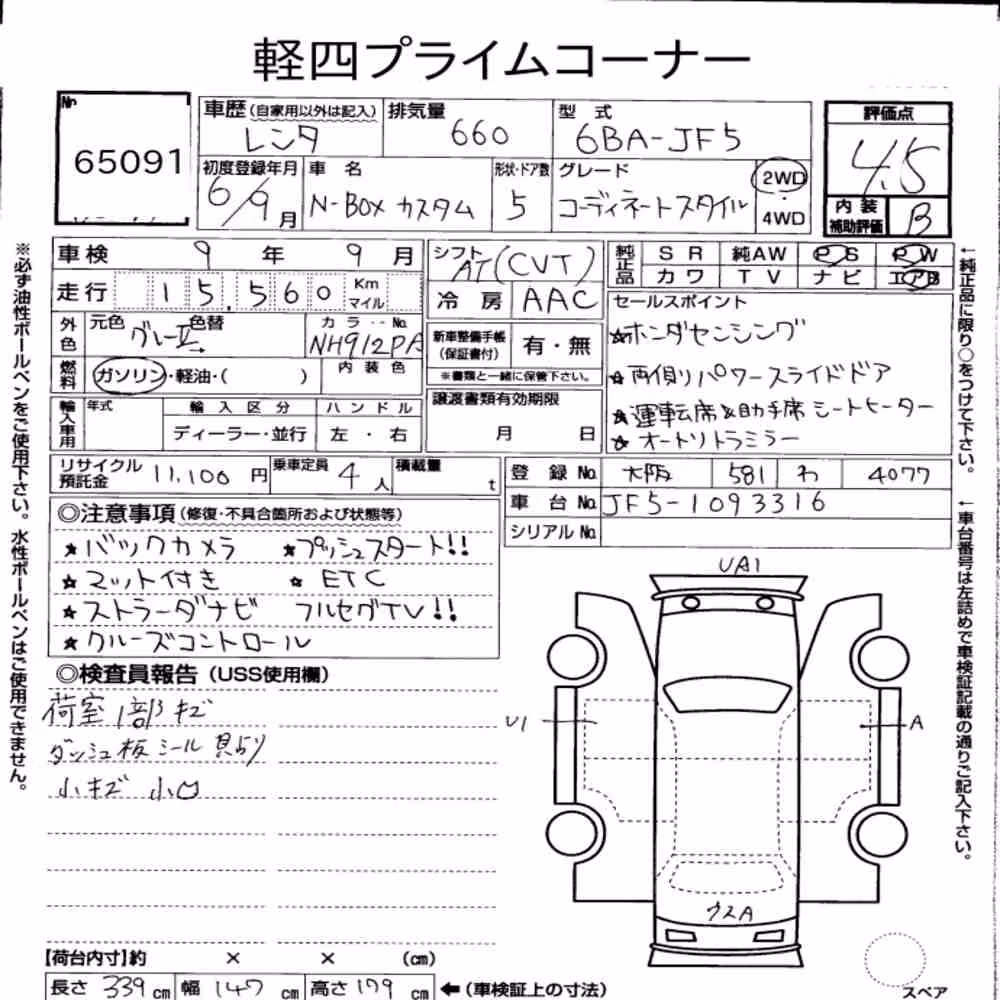 軽四プライムコーナー
No
65091
車歴(自家用以外は記入)
レンタ
排気量
660
型式
6BA-JF5
評価点
4.5
内装補助評価
B
初度登録年月
6/9月
車名
N-BOX カスタム
形状・ドア数
5
グレード
コーディネートスタイル
2WD
4WD
車検 9年 9月
走行 15,560 Km マイル
シフト
AT(CVT)
冷房 AAC
純正品 SR 純AW PS PW
カワ TV ナビ エアB
外色 元色 グレーⅡ 色替
カラーNo.
NH912PA
燃料 ガソリン・軽油・( )
内装色
新車整備手帳(保証書付) 有・無
※書類と一緒に保管下さい。
セールスポイント
☆ホンダセンシング
☆両側パワースライドドア
☆運転席&助手席シートヒーター
☆オートリトラミラー
輸入車用 年式 輸入区分 ハンドル
ディーラー・並行 左・右
譲渡書類有効期限
月 日
リサイクル預託金 11,100円
乗車定員 4人
積載量 t
登録No. 大阪 581 わ 4077
車台No. JF5-1093316
シリアルNo.
◎注意事項(修復・不具合箇所および状態等)
☆バックカメラ ☆プッシュスタート!!
☆マット付き ☆ETC
☆ストラーダナビ フルセグTV!!
☆クルーズコントロール
◎検査員報告(USS使用欄)
荷室1部キズ
ダッシュ板シール貼り
小キズ 小凹
UA1
U1
A
ウスA
スペア
【荷台内寸】約 × × (cm)
長さ 339cm 幅 147cm 高さ 179cm ←(車検証上の寸法)
※必ず油性ボールペンをご使用下さい。水性ボールペンはご使用できません。
←純正品に限り○をつけて下さい。
←車台番号は左詰めで車検証記載の通りご記入下さい。